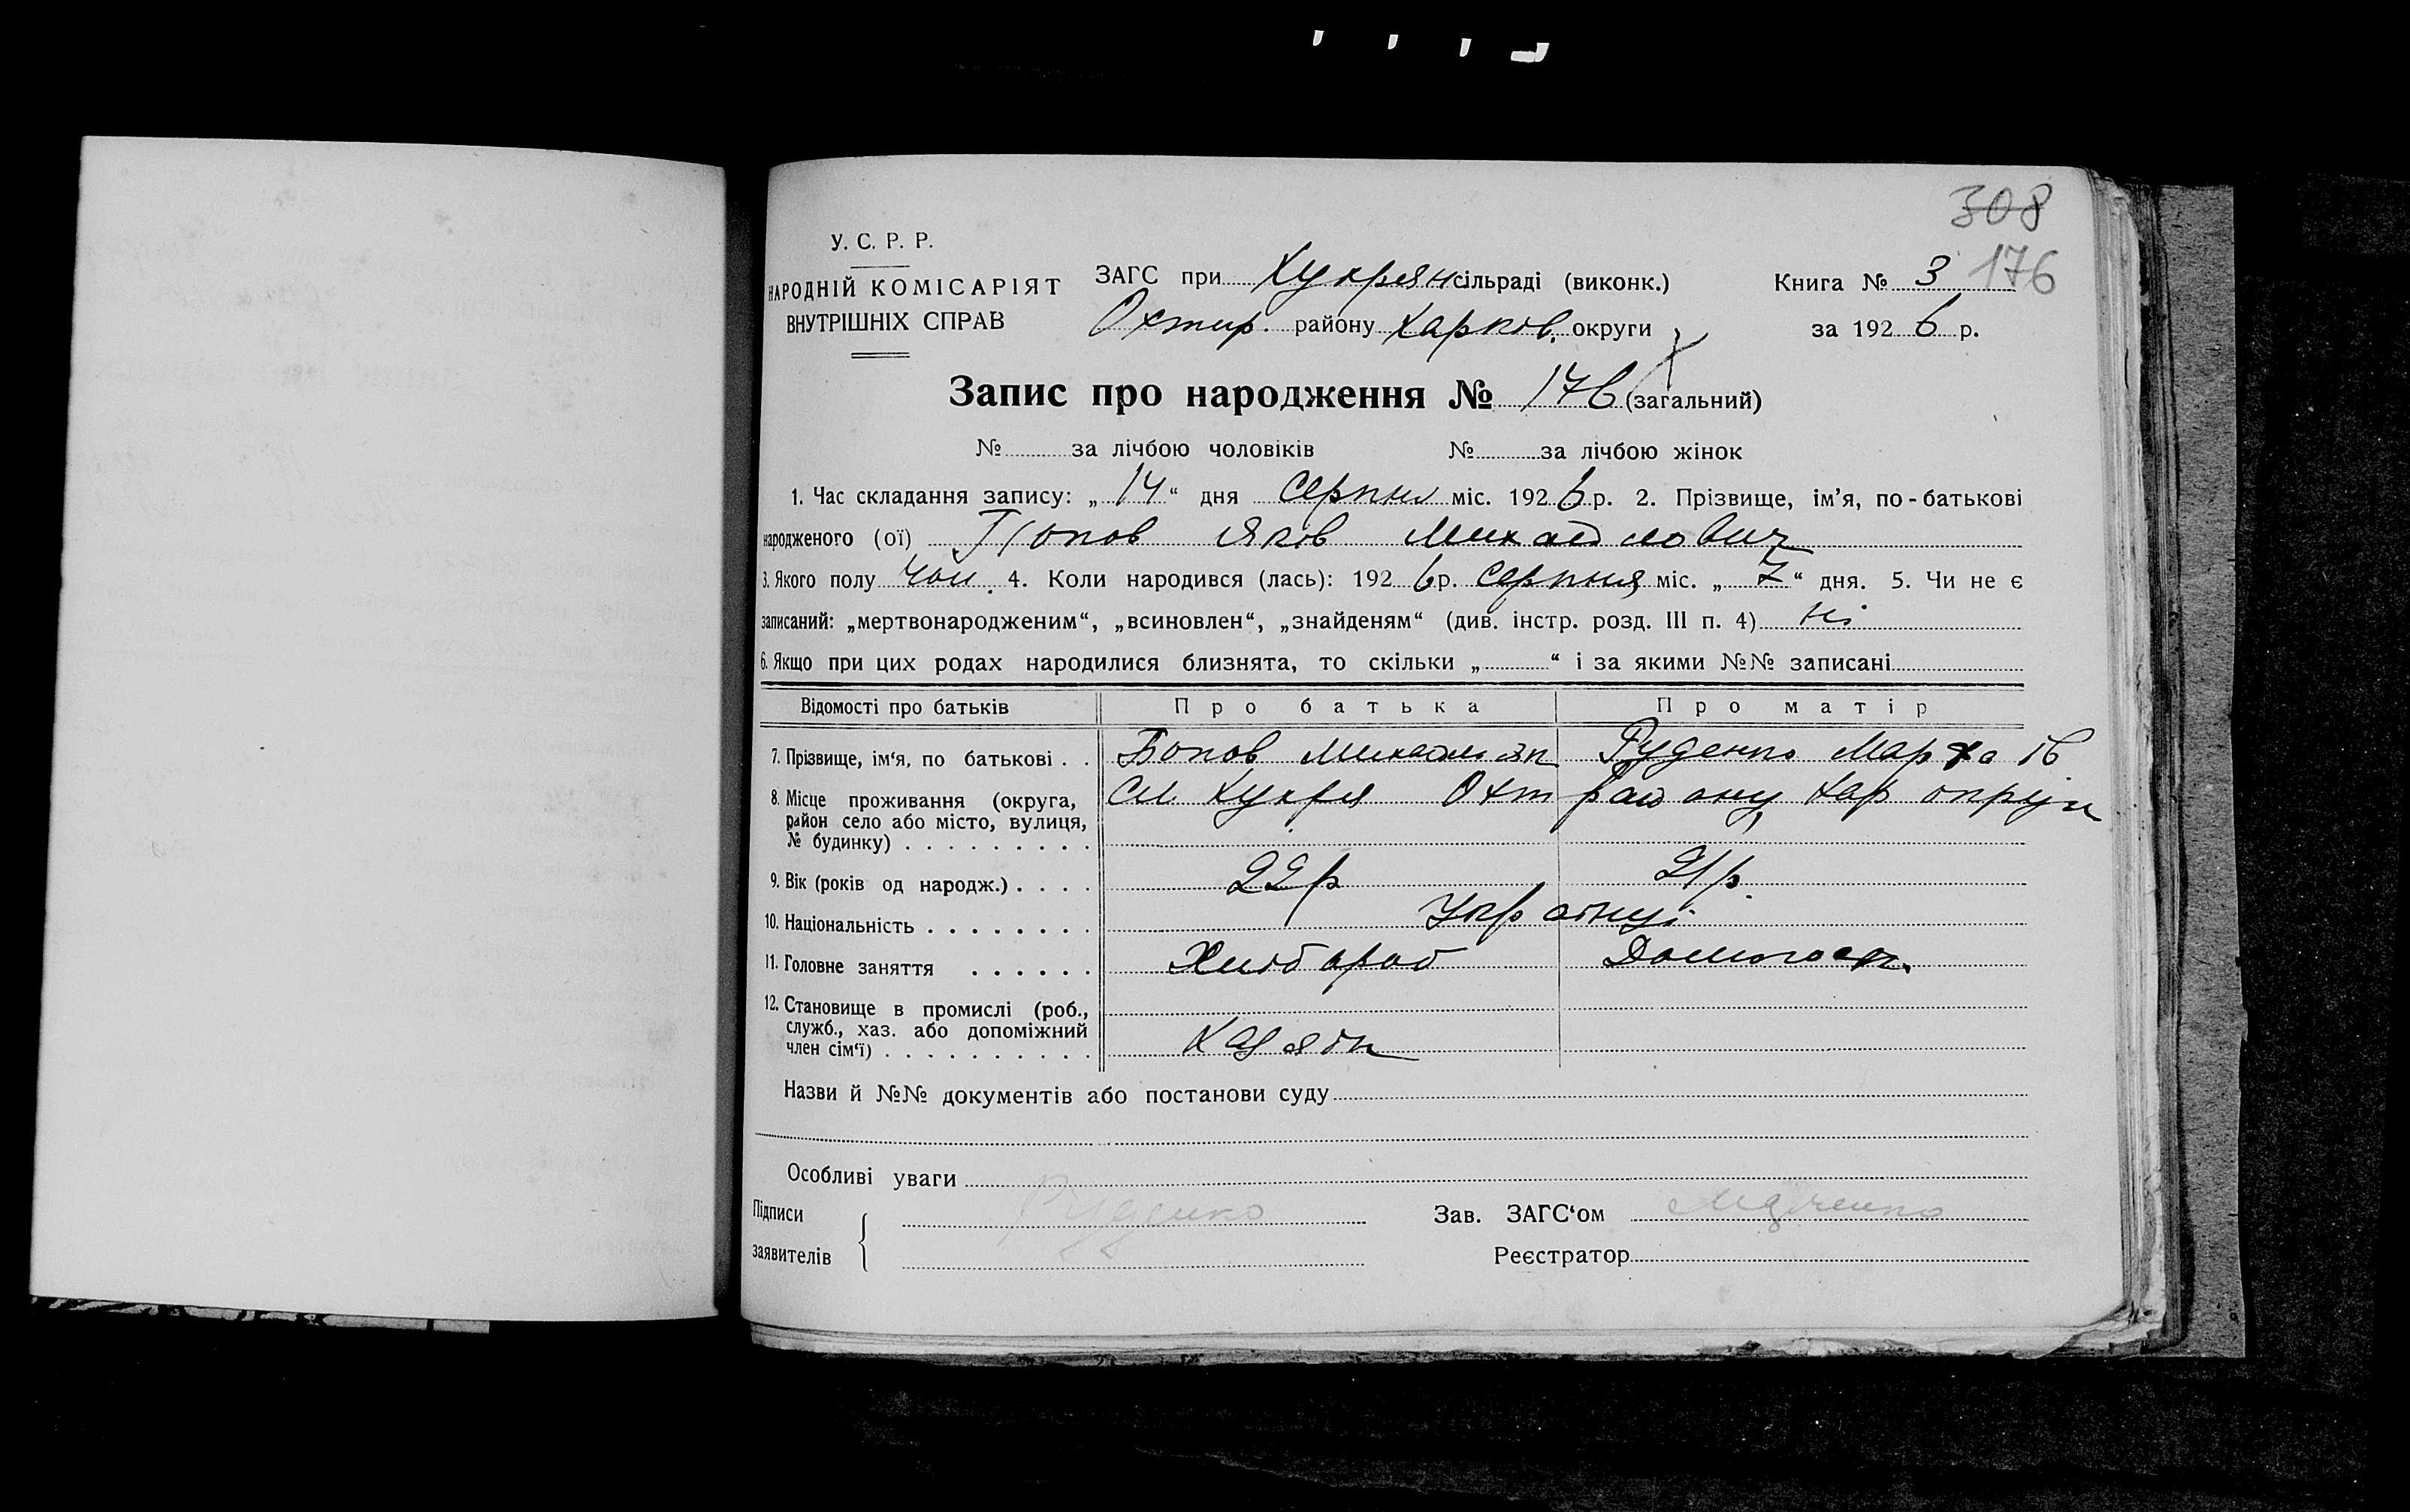 308
У. С. Р. Р.
НАРОДНІЙ КОМІСАРІЯТ
ВНУТРІШНІХ СПРАВ
ЗАГС при Хухрян сільраді (виконк.)
Охтир. району Харков. округи
Книга № 3 176
за 1926 р.
Запис про народження № 176 (загальний)
№ за лічбою чоловіків № за лічбою жінок
1. Час складання запису: „14“ дня серпня міс. 1926 р. 2. Прізвище, ім’я, по-батькові
народженого (ої) Попов Яков Михайлович
3. Якого полу чол. 4. Коли народився (лась): 1926 р. серпня міс. „7“ дня. 5. Чи не є
записаний: „мертвонародженим“, „всиновлен“, „знайденям“ (див. інстр. розд. III п. 4) Ні
6. Якщо при цих родах народилися близнята, то скільки „ “ і за якими №№ записані
Відомості про батьків Про батька Про матір
7. Прізвище, ім‘я, по батькові . . Бопов Михайло Як Руденко Марфа Ів
8. Місце проживання (округа, Сл. Хухря Охт району Хар округи
район село або місто, вулиця,
№ будинку) . . . . . . . . .
9. Вік (років од народж.) . . . . 22 р 21 р.
10. Національність . . . . . . . . Українці
11. Головне заняття . . . . . . Хлібороб Домогосп.
12. Становище в промислі (роб.,
служб., хаз. або допоміжний
член сім‘ї) . . . . . . . . . . Хазяїн
Назви й №№ документів або постанови суду
Особливі уваги
Підписи
заявителів
Руденко
Зав. ЗАГС‘ом
Реєстратор